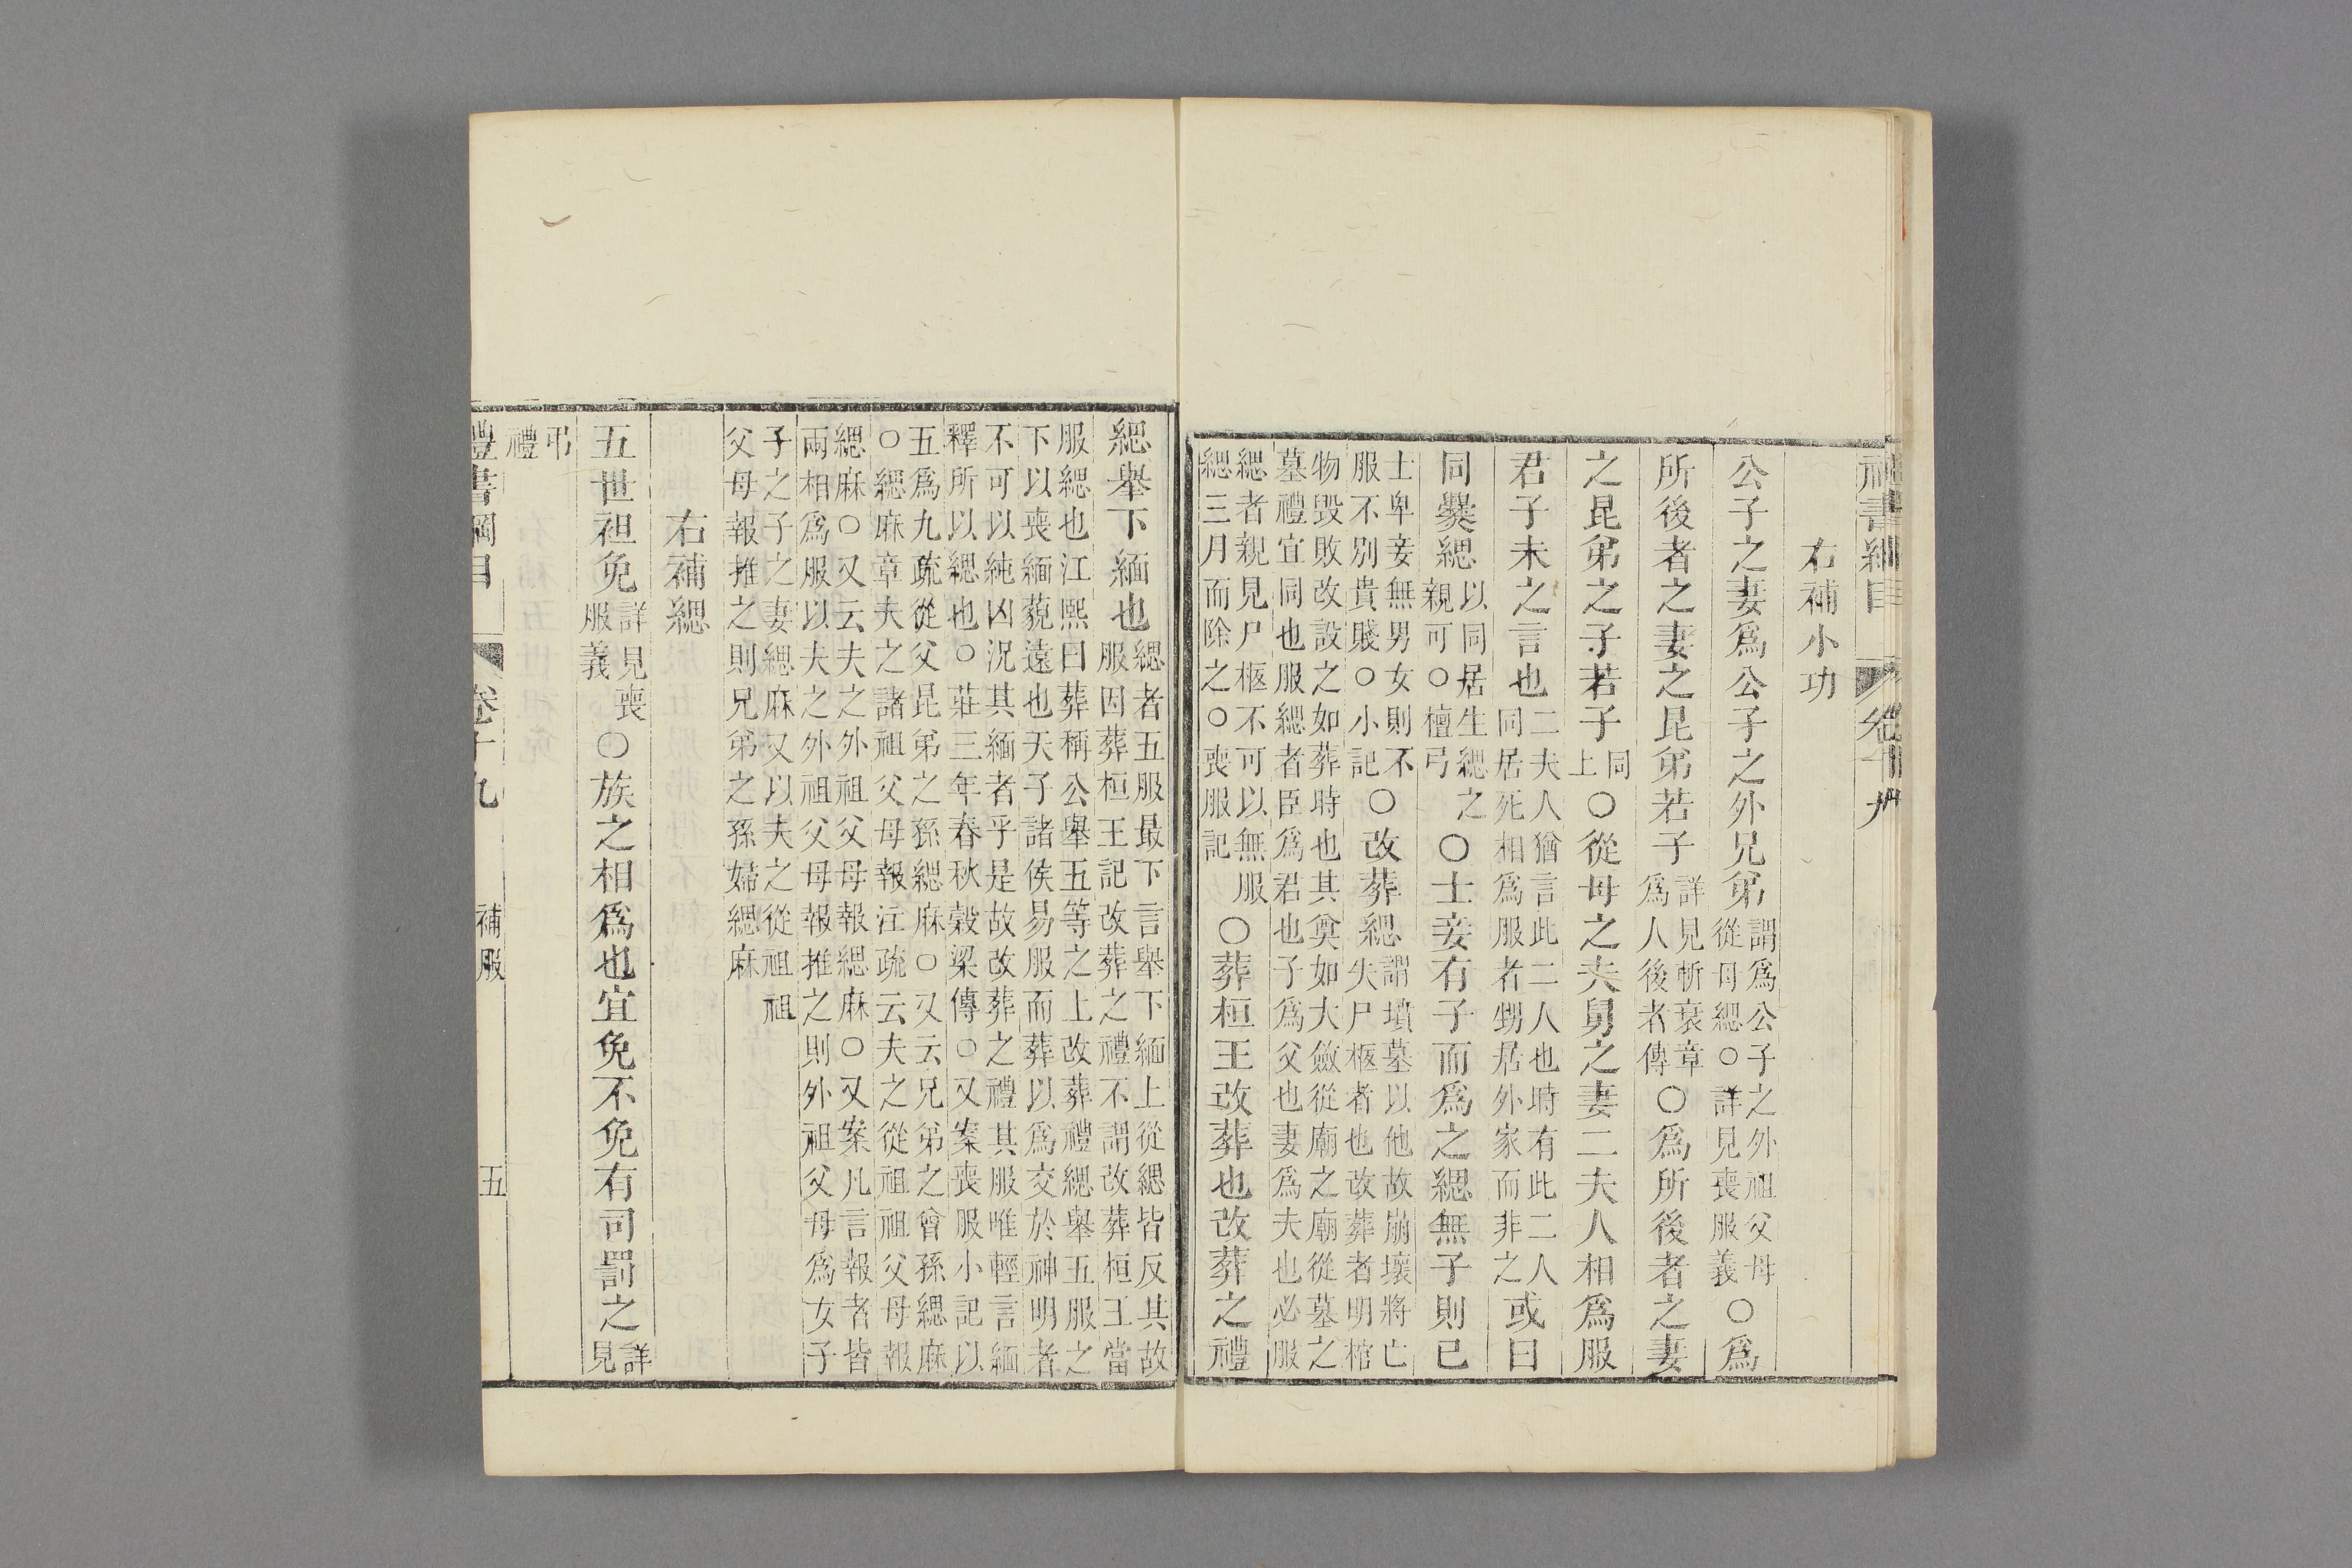 禮書綱目 卷十九
右補小功
公子之妻爲公子之外兄弟謂爲公子之外祖父母從母緦○詳見喪服義○爲
所後者之妻之昆弟若子詳見斬衰章爲人後者傳○爲所後者之妻
之昆弟之子若子同上○從母之夫舅之妻二夫人相爲服
君子未之言也二夫人猶言此二人也時有此二人同居死相爲服者甥居外家而非之或曰
同爨緦以同居生緦之親可○檀弓○士妾有子而爲之緦無子則已
士卑妾無男女則不服不別貴賤○小記○改葬緦謂墳墓以他故崩壞將亡失尸柩者也改葬者明棺
物毀敗改設之如葬時也其奠如大斂從廟之廟從墓之墓禮宜同也服緦者臣爲君也子爲父也妻爲夫也必服
緦者親見尸柩不可以無服緦三月而除之○喪服記○葬桓王改葬也改葬之禮
緦舉下緬也緦者五服最下言舉下緬上從緦皆反其故服因葬桓王記改葬之禮不謂改葬桓王當
服緦也江熙曰葬稱公舉五等之上改葬禮緦舉五服之下以喪緬藐遠也天子諸侯易服而葬以爲交於神明者
不可以純凶況其緬者乎是故改葬之禮其服唯輕言緬釋所以緦也○莊三年春秋穀梁傳○又案喪服小記以
五爲九疏從父昆弟之孫緦麻○又云兄弟之曾孫緦麻○緦麻章夫之諸祖父母報注疏云夫之從祖祖父母報
緦麻○又云夫之外祖父母報緦麻○又案凡言報者皆兩相爲服以夫之外祖父母報推之則外祖父母爲女子
子之子之妻緦麻又以夫之從祖祖父母報推之則兄弟之孫婦緦麻
右補緦
五世袒免詳見喪服義○族之相爲也宜免不免有司罰之詳見
弔禮
禮書綱目 卷十九 補服 五